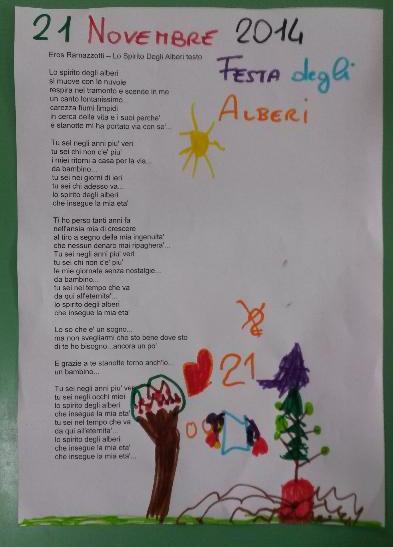 21 NOVEMBRE 2014
Eros Ramazzotti – Lo Spirito Degli Alberi testo
FESTA degli
ALBERI
Lo spirito degli alberi
si muove con le nuvole
respira nel tramonto e scende in me
un canto lontanissimo
carezza fiumi limpidi
in cerca della vita e i suoi perche'
e stanotte mi ha portato via con se'...
Tu sei negli anni piu' veri
tu sei chi non c'e' piu'
i miei ritorni a casa per la via...
da bambino...
tu sei nei giorni di ieri
tu sei chi adesso va...
lo spirito degli alberi
che insegue la mia eta'
Ti ho perso tanti anni fa
nell'ansia mia di crescere
al tiro a segno della mia ingenuita'
che nessun denaro mai ripaghera'...
Tu sei negli anni piu' veri
tu sei chi non c'e' piu'
le mie giornate senza nostalgie...
da bambino...
tu sei nel tempo che va
da qui all'eternita'...
lo spirito degli alberi
che insegue la mia eta'
Lo so che e' un sogno...
ma non svegliarmi che sto bene dove sto
di te ho bisogno...ancora un po'
E grazie a te stanotte torno anch'io...
un bambino...
Tu sei negli anni piu' veri
tu sei negli occhi miei
lo spirito degli alberi
che insegue la mia eta'
tu sei nel tempo che va
da qui all'eternita'...
lo spirito degli alberi
che insegue la mia eta'...
che insegue la mia eta'...
21